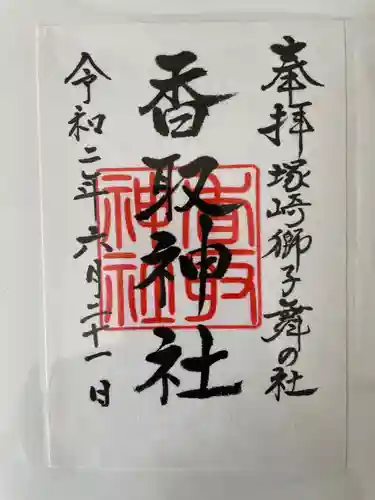 奉拝 塚崎獅子舞の社
香取神社
香取神社
令和二年六月二十一日